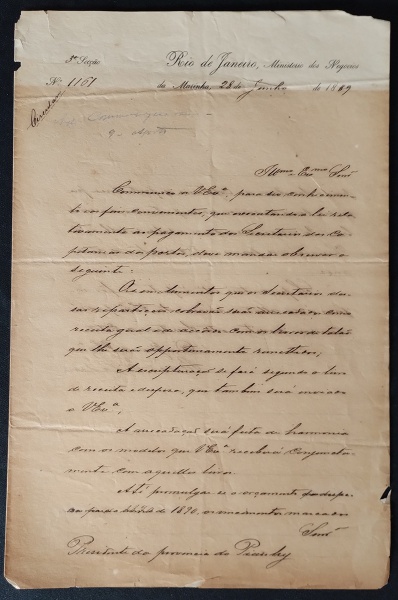 3ª Secção
Nº 1161
Rio de Janeiro, Ministerio dos Negocios
da Marinha, 28 de Junho de 1889
Circular
Illmo. Exmo. Senr.
Communico a V Exª. para seu conhecimen-
to e os fins convenientes, que executando a lei rela-
tivamente ao pagamento dos Secretarios das Ca-
pitanias de portos, deve mandar observar o
seguinte:
Os emolumentos que os Secretarios des-
sas repartições cobravão serão arrecadados como
receita geral de accôrdo com os livros de talão
que lhe serão opportunamente remettidos;
A escripturação se fará segundo o livro
de receita e despeza, que tambem será enviado
a V Exª.
A arrecadação será feita de harmonia
com os modelos que V Exª receberá conjuncta-
mente com aquelle livro.
Até promulgar-se o orçamento da despe-
za para o de 1890, os vencimentos marcados
Senr.
Presidente da provincia do Piauhy